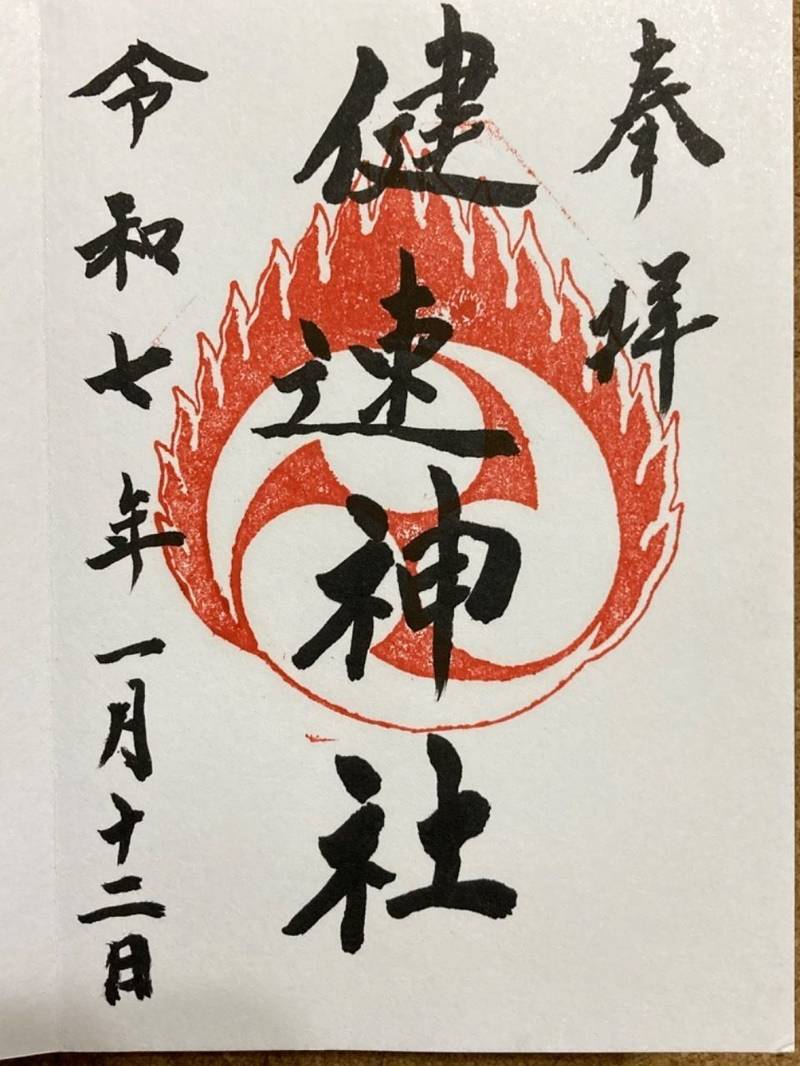 奉拝
健速神社
令和七年一月十二日